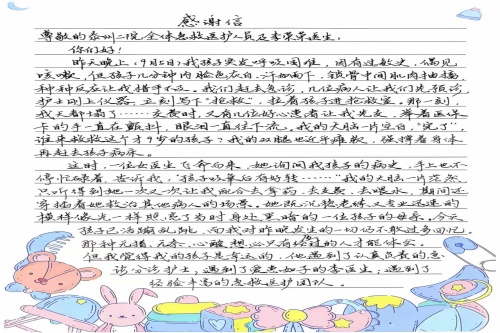 感谢信
尊敬的泰州二院全体急救医护人员及李荣荣医生:
你们好!
昨天晚上(9月5日)我孩子突发呼吸困难,因有过敏史,偶见
咳嗽,但孩子几分钟内脸色苍白,汗如雨下,锁骨中间肌肉抽搐,
种种反应让我措手不及。我们赶去急诊,几位病人让我们先预诊,
护士刚上仪器,立刻写下“抢救”,拉着孩子进抢救室。那一刻,
我天都塌了……交费时,又有几位好心患者让我先交,举着医保
卡的手一直在颤抖,眼泪一直往下流。我的大脑一片空白,“完了”
谁来救救这个才9岁的孩子?我的双腿也近乎瘫软,强撑着身体
再赶去孩子病床。
这时,一位女医生飞奔而来,她询问我孩子的病史,手上也不
停忙碌着,告诉我,“孩子效果后有好转……”我的大脑一片茫然,
只听得到她一次又一次让我配合去拿药、去交费、去喂水,期间还
穿插着她救治其他病人的场景。她既沉稳老练又专业迅速的
模样像光一样照亮了当时身处黑暗的一位孩子的母亲。今天
孩子已活蹦乱跳,而我对昨晚发生的一切仍不敢过多回忆。
那种无措、无奈、心酸,想必只有经过的人才能体会。
但我觉得我的孩子是幸运的,他遇到了认真负责的急
诊分诊护士,遇到了爱患如子的李医生,遇到了
经验丰富的急救医护团队。